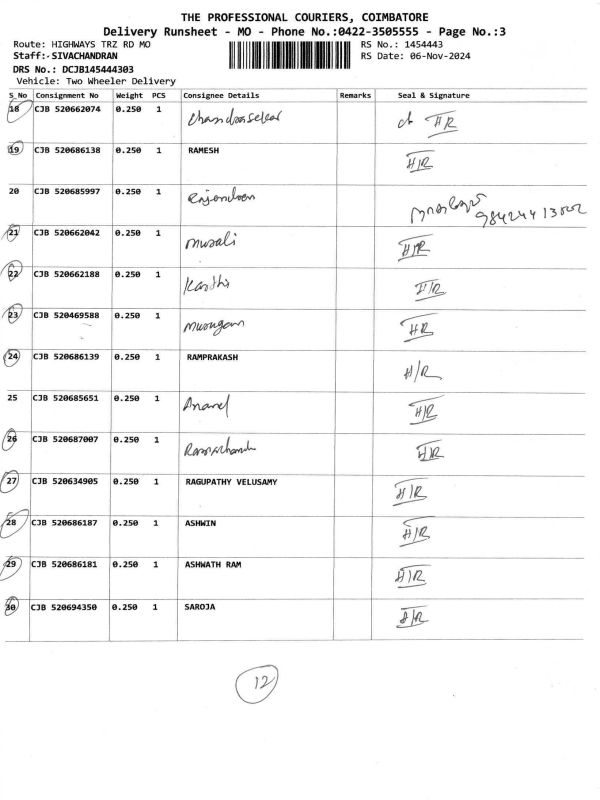 THE PROFESSIONAL COURIERS, COIMBATORE
Delivery Runsheet - MO - Phone No.:0422-3505555 - Page No.:3
Route: HIGHWAYS TRZ RD MO RS No.: 1454443
Staff:-SIVACHANDRAN RS Date: 06-Nov-2024
DRS No.: DCJB145444303
Vehicle: Two Wheeler Delivery
S_No Consignment No Weight PCS Consignee Details Remarks Seal & Signature
18 CJB 520662074 0.250 1 Chandrasekar H/R
19 CJB 520686138 0.250 1 RAMESH H/R
20 CJB 520685997 0.250 1
21 CJB 520662042 0.250 1 Murali H/R
22 CJB 520662188 0.250 1 Karthi H/R
23 CJB 520469588 0.250 1 Murugan H/R
24 CJB 520686139 0.250 1 RAMPRAKASH H/R
25 CJB 520685651 0.250 1 Anand H/R
26 CJB 520687007 0.250 1 H/R
27 CJB 520634905 0.250 1 RAGUPATHY VELUSAMY H/R
28 CJB 520686187 0.250 1 ASHWIN H/R
29 CJB 520686181 0.250 1 ASHWATH RAM H/R
30 CJB 520694350 0.250 1 SAROJA H/R
12